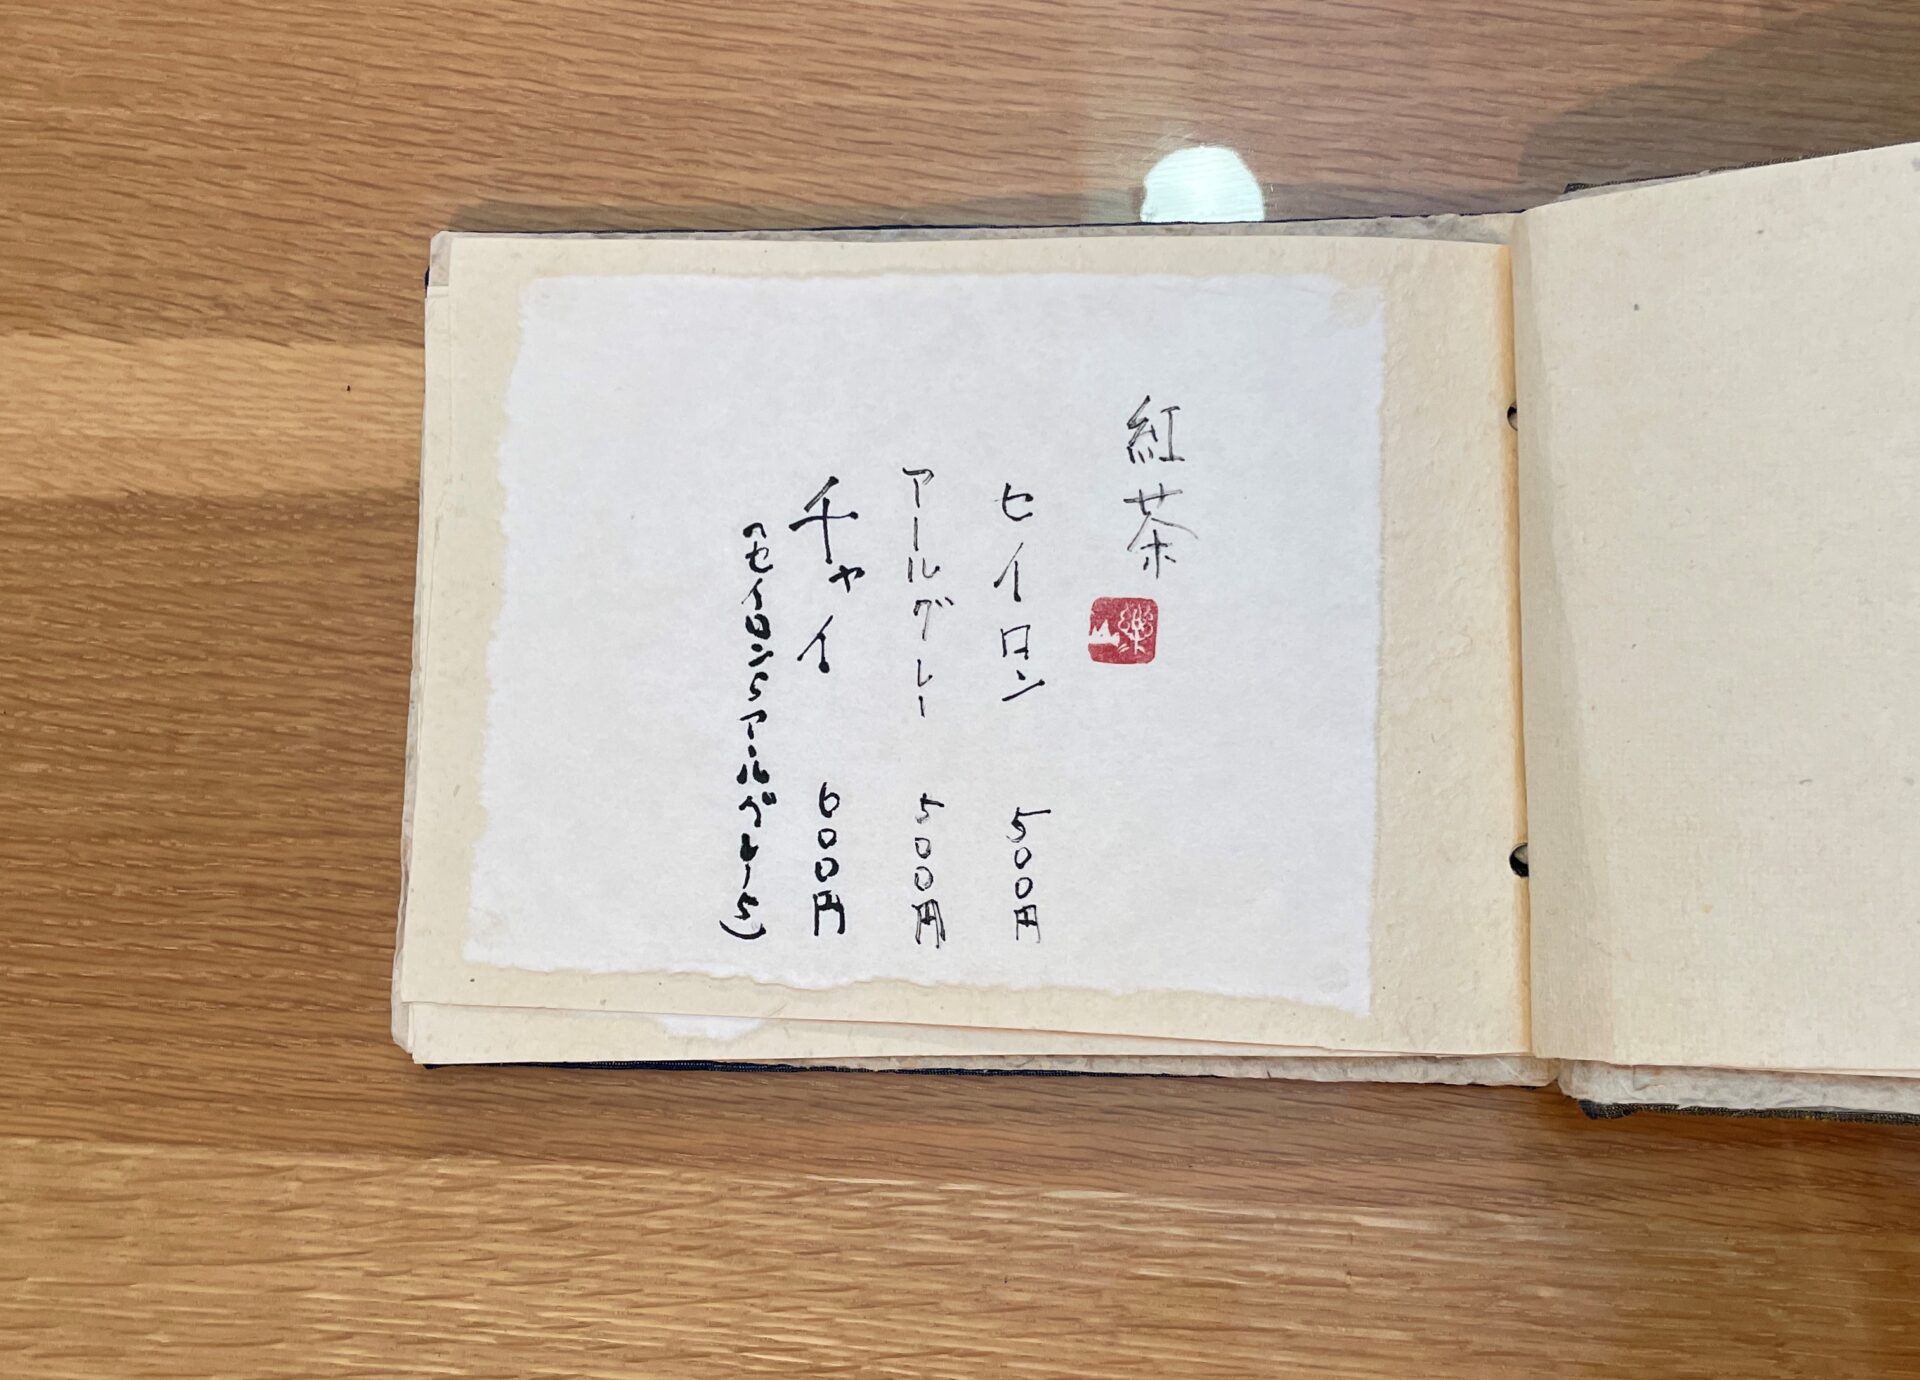 紅茶
セイロン 500円
アールグレー 500円
チャイ 600円
(セイロン アールグレー )